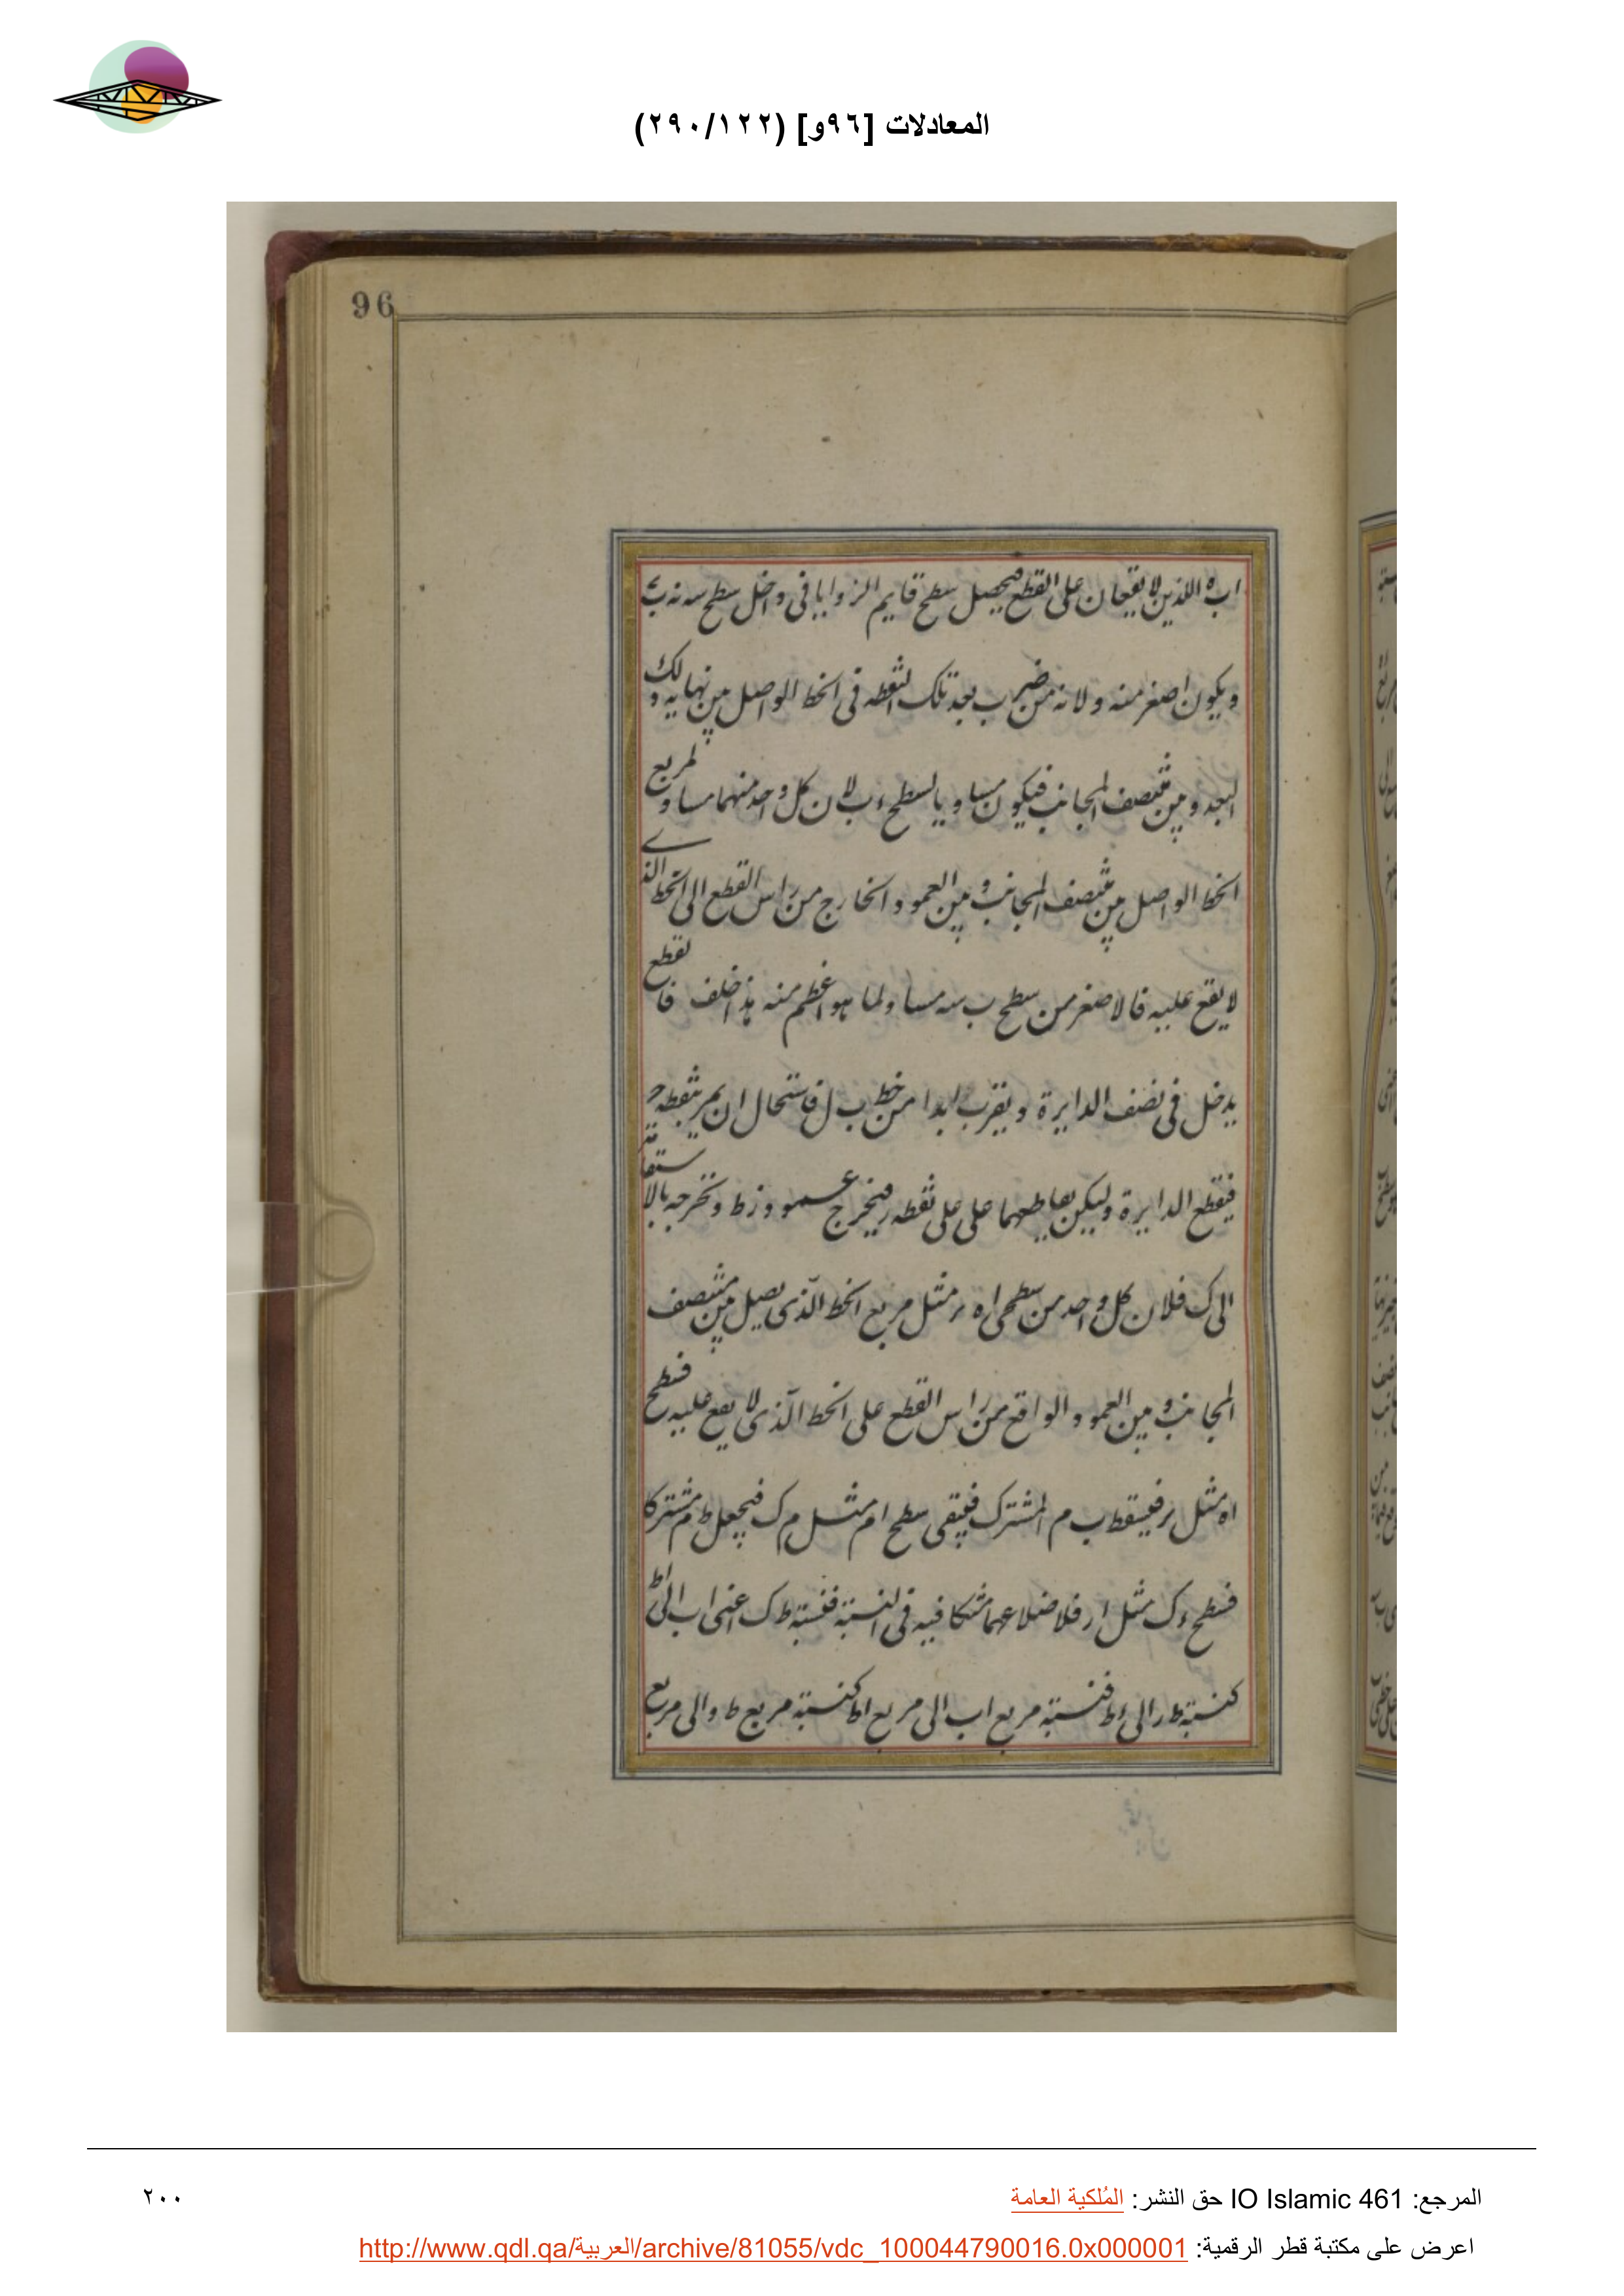 المعادلات [٩٦و] (٢٩٠/١٢٢)
96
اب ه اللذين لا يقعان على القطع فيحصل سطح قايم الزوايا فى داخل سطح
ويكون اصغر منه ولانه من ضرب بعد تلك النقطه فى الخط الواصل بين نهايه ذلك
البعد وبين منتصف المجانب فيكون مساويا لسطح ء ب لان كل واحد منهما مساو لمربع
الخط الواصل بين منتصف المجانب وبين العمود الخارج من راس القطع الى الخط الذى
لا يقع عليه فالاصغر من سطح ب سه مساو لما هو اعظم منه هذا خلف فالقطع
يدخل فى نصف الدايرة ويقرب ابدا من خط ب ل فاستحال ان يمر بنقطه
فيقطع الدايرة وليكن تقاطعهما على على نقطه ر فيخرج عمود زط ونخرجه بالاستقامة
الى ك فلان كل واحد من سطحى اه ءر مثل مربع الخط الذى يصل بين منتصف
المجانب وبين العمود الواقع من راس القطع على الخط الذى لا يقع عليه فسطح
اه مثل ءر فيسقط ب م المشترك فيبقى سطح ام مثل م ك فيجعل ط م مشتركا
فسطح ءك مثل ار فلاضلاعهما متكافيه فى النسبة فنسبة ط ك اعنى اب الى اط
كنسبة ط ر الى ءط فنسبة مربع اب الى مربع اط كنسبة مربع ط ر الى مربع
المرجع: IO Islamic 461 حق النشر: المُلكية العامة
٢٠٠
اعرض على مكتبة قطر الرقمية: http://www.qdl.qa/العربية/archive/81055/vdc_100044790016.0x000001